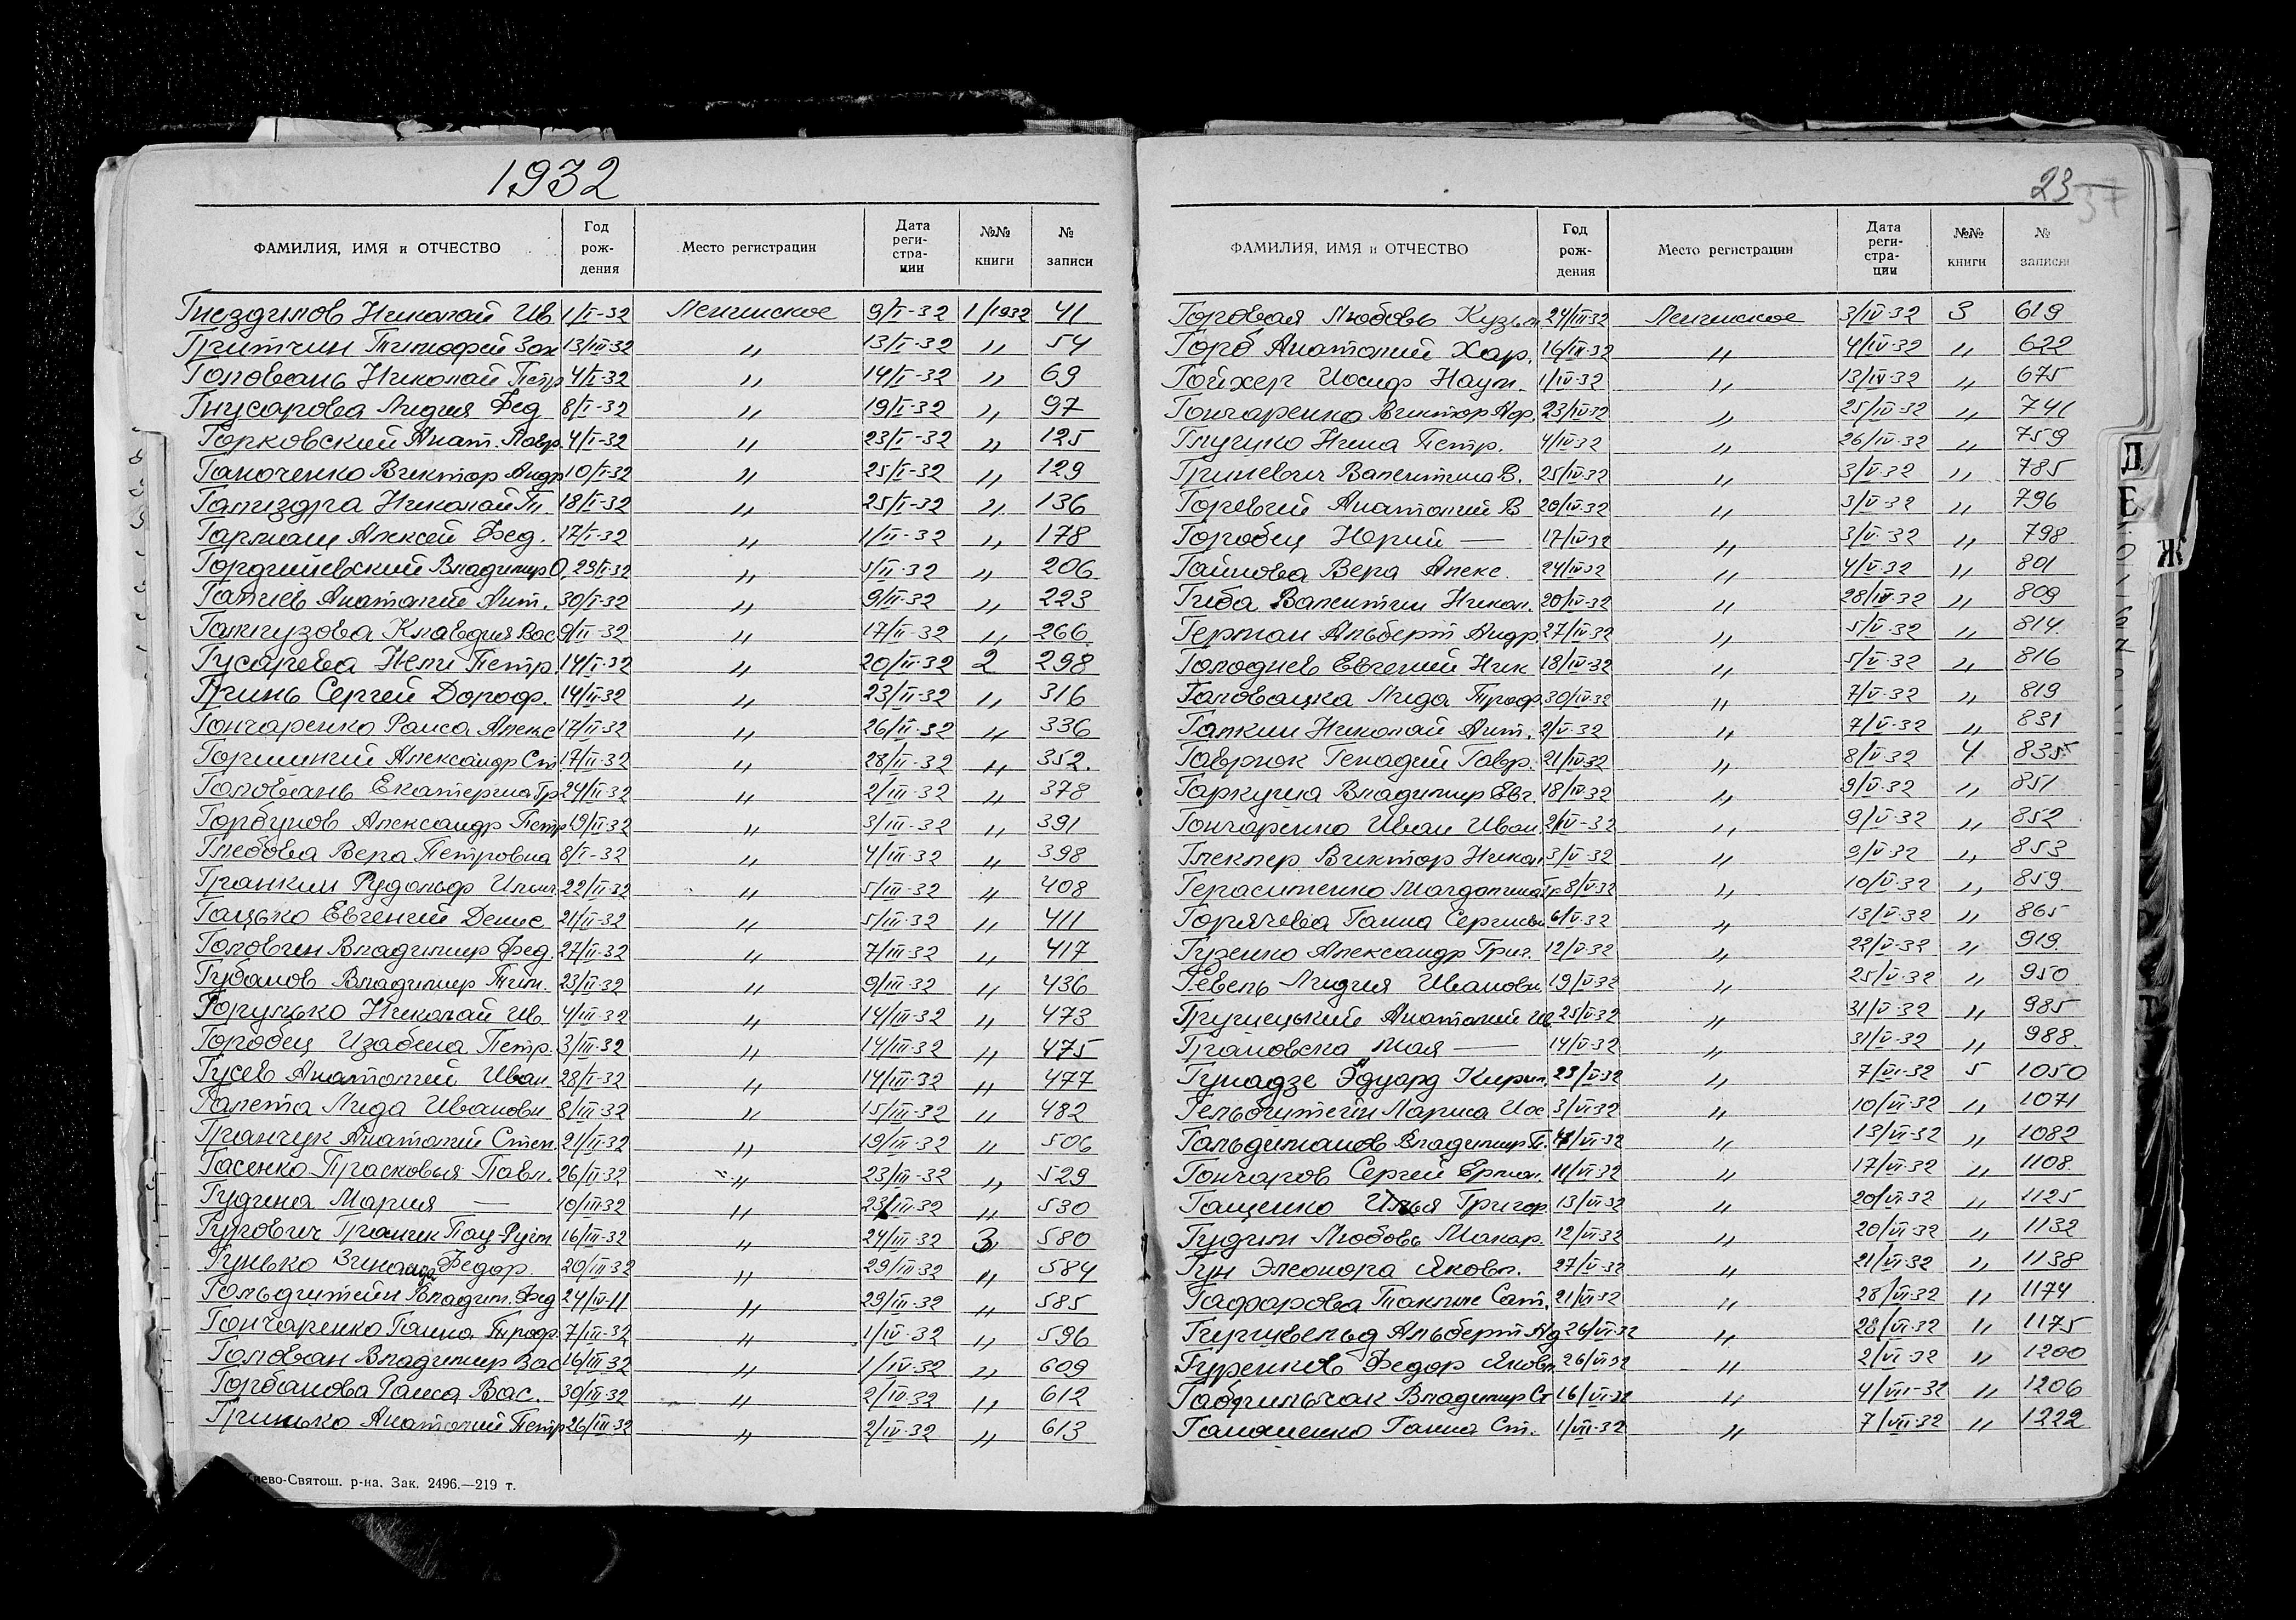 1932
ФАМИЛИЯ, ИМЯ и ОТЧЕСТВО Год рождения Место регистрации Дата регистрации №№ книги № записи
Гнездилов Николай Ив 1/I-32 Ленинское 9/I-32 1/1932 41
Гритчин Тимофей Зах 13/III-32 " 13/I-32 " 54
Головань Николай Петр 4/I-32 " 14/I-32 " 69
Гнусарова Лидия Фед 8/I-32 " 19/I-32 " 97
Горковский Анат. Павр. 4/I-32 " 23/I-32 " 125
Ганоченко Виктор Андр 10/I-32 " 25/I-32 " 129
Гализдра Николай П. 18/I-32 " 25/I-32 " 136
Гармаш Алексей Фед. 17/I-32 " 1/II-32 " 178
Гордлиевский Владимир О. 23/I-32 " 3/II-32 " 206
Гапиев Анатолий Ант. 30/I-32 " 9/II-32 " 223
Галгузова Клавдия Вас 9/II-32 " 17/II-32 " 266
Гусарева Нели Петр. 14/I-32 " 20/II-32 2 298
Гринь Сергей Дороф. 14/II-32 " 23/II-32 " 316
Гончаренко Раиса Алекс 17/II-32 " 26/II-32 " 336
Александр Ст 17/II-32 " 28/II-32 " 352.
Головань Екатерина Гр 24/II-32 " 2/III-32 " 378
Горбунов Александр Петр 19/II-32 " 3/III-32 " 391
Глебова Вера Петровна 8/I-32 " 4/III-32 " 398
Гранкин Рудольф Ильич 22/II-32 " 5/III-32 " 408
Гацько Евгений Денис 21/II-32 " 5/III-32 " 411
Головин Владимир Фед. 27/II-32 " 7/III-32 " 417
Губанов Владимир Тим. 23/II-32 " 9/III-32 " 436
Горулько Николай Ив. 4/III-32 " 14/III-32 " 473
Горобец Изабела Петр. 3/III-32 " 14/III-32 " 475
Гусев Анатолий Иван 28/I-32 " 14/III-32 " 477
Галета Лида Ивановн 8/III-32 " 15/III-32 " 482
Гранчук Анатолий Степ. 21/II-32 " 19/III-32 " 506
Гасенко Прасковья Павл. 26/II-32 " 23/III-32 " 529
Гудина Мария — 10/III-32 " 23/III-32 " 530
Гурович 16/III-32 " 24/III-32 3 580
Гунько Зинаида Федор. 20/III-32 " 29/III-32 " 584
Гольдштейн Владим. Фед 24/IV-11 " 29/III-32 " 585
Гончаренко Ганна Троф. 7/III-32 " 1/IV-32 " 596
Голован Владимир Вас 16/III-32 " 1/IV-32 " 609
Горбанова Раиса Вас. 30/III-32 " 2/IV-32 " 612
Гринько Анатолий Петр 26/III-32 " 2/IV-32 " 613
Киево-Святош. р-на. Зак. 2496.—219 т.
23 37
ФАМИЛИЯ, ИМЯ и ОТЧЕСТВО Год рождения Место регистрации Дата регистрации №№ книги № записи
Горовая Любовь Кузьм 24/III-32 Ленинское 3/IV-32 3 619
Горб Анатолий Хар. 16/III-32 " 4/IV-32 " 622
Гойхер Иосиф Наум. 1/IV-32 " 13/IV-32 " 675
Гончаренко Виктор Аф. 23/IV-32 " 25/IV-32 " 741
Глущко Нина Петр. 4/IV-32 " 26/IV-32 " 759
Гриневич Валентина В. 25/IV-32 " 3/V-32 " 785
Горевий Анатолий В 20/IV-32 " 3/V-32 " 796
Горобец Юрий — 17/IV-32 " 3/V-32 " 798
Гаинова Вера Алекс. 24/IV-32 " 4/V-32 " 801
Гиба Валентин Никол. 20/IV-32 " 28/IV-32 " 809
Герман Альберт Андр. 27/IV-32 " 5/V-32 " 814
Голоднев Евгений Ник 18/IV-32 " 5/V-32 " 816
Головацка Лида Троф. 30/IV-32 " 7/V-32 " 819
Галкин Николай Ант. 2/V-32 " 7/V-32 " 831
Гаврюк Генадий Гавр. 21/IV-32 " 8/V-32 4 835
Гаркуша Владимир Евг. 18/IV-32 " 9/V-32 " 851
Гончаренко Иван Иван 2/V-32 " 9/V-32 " 852
Глекнер Виктор Никол 3/V-32 " 9/V-32 " 853
Герасименко Магдалина Гр. 8/V-32 " 10/V-32 " 859
Горячева Ганна Сергиевн 6/V-32 " 13/V-32 " 865
Гузенко Александр Григ. 12/V-32 " 22/V-32 " 919
Гевель Лидия Ивановн. 19/V-32 " 25/V-32 " 950
Грушецький Анатолий Ив. 25/V-32 " 31/V-32 " 985
Грановска Мая — 14/V-32 " 31/V-32 " 988.
Гунадзе Эдуард Кирил. 23/V-32 " 7/VI-32 5 1050
Гельбштейн Лариса Иос 3/VI-32 " 10/VI-32 " 1071
Гальдиманов Владимир П. /VI-32 " 13/VI-32 " 1082
Гончаров Сергей Ермол. 11/VI-32 " 17/VI-32 " 1108
Гащенко Илья Григор 13/VI-32 " 20/VI-32 " 1125
Гудим Любовь Макар. 12/VI-32 " 20/VI-32 " 1132
Гун Элеонора Яковл. 27/V-32 " 21/VI-32 " 1138
Гафарова Сат. 21/VI-32 " 28/VI-32 " 1174
Гиршвельд Альберт Ад 26/VI-32 " 28/VI-32 " 1175
Гуренков Федор Яковл. 26/VI-32 " 2/VI-32 " 1200
Габрильчак Владимир Ст 16/VI-32 " 4/VII-32 " 1206
Ганна Ст. 1/VII-32 " 7/VII-32 " 1222
Д
Е
Ж